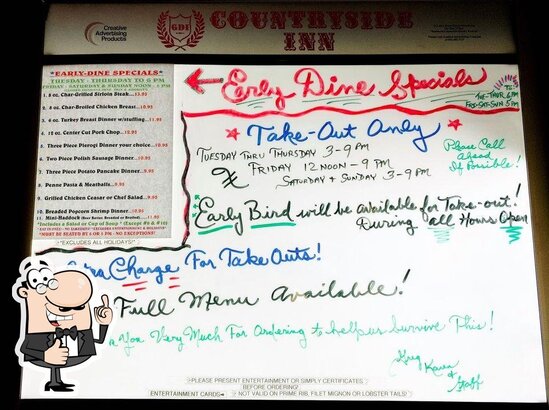 Creative
Advertising
Products
GBI
COUNTRYSIDE
INN
*EARLY-DINE SPECIALS*
TUESDAY - THURSDAY TO 6 PM
FRIDAY - SATURDAY & SUNDAY NOON -
1 8 oz. Char-Grilled Sirloin Steak...
2. 8 oz. Char-Broiled Chicken Breast...10.95
3. 6 oz. Turkey Breast Dinner w/stuffing...
4. 10 oz. Center Cut Pork Chop...
5. Three Piece Pierogi Dinner your choice...10.95
6. Two Piece Polish Sausage Dinner...10.95
7. Three Piece Potato Pancake Dinner...10.95
8. Penne Pasta & Meatballs...
9. Grilled Chicken Ceasar or Chef Salad...10.95
10. Breaded Popcorn Shrimp Dinner...10.95
11. Mini-Haddock
*Includes a Salad or Cup of Soup
*MUST BE SEATED BY 6 OR 5 PM - NO EXCEPTIONS!
*EXCLUDES ALL HOLIDAYS!*
Early Dine Specials
TUE-THUR 6PM
FRI-SAT-SUN 5PM
Take-Out Only
TUESDAY THRU THURSDAY 3-9 PM
FRIDAY 12 NOON - 9 PM
SATURDAY + SUNDAY 3-9 PM
Please Call
Ahead
If Possible!
Early Bird will be available for Take-out!
During all Hours Open
Charge For Take Outs!
Full Menu Available!
You Very Much For Ordering to help us Survive This!
Greg
Karen
& Staff
PLEASE PRESENT ENTERTAINMENT OR SIMPLY CERTIFICATES
BEFORE ORDERING!
ENTERTAINMENT CARDS NOT VALID ON PRIME RIB, FILET MIGNON OR LOBSTER TAILS!